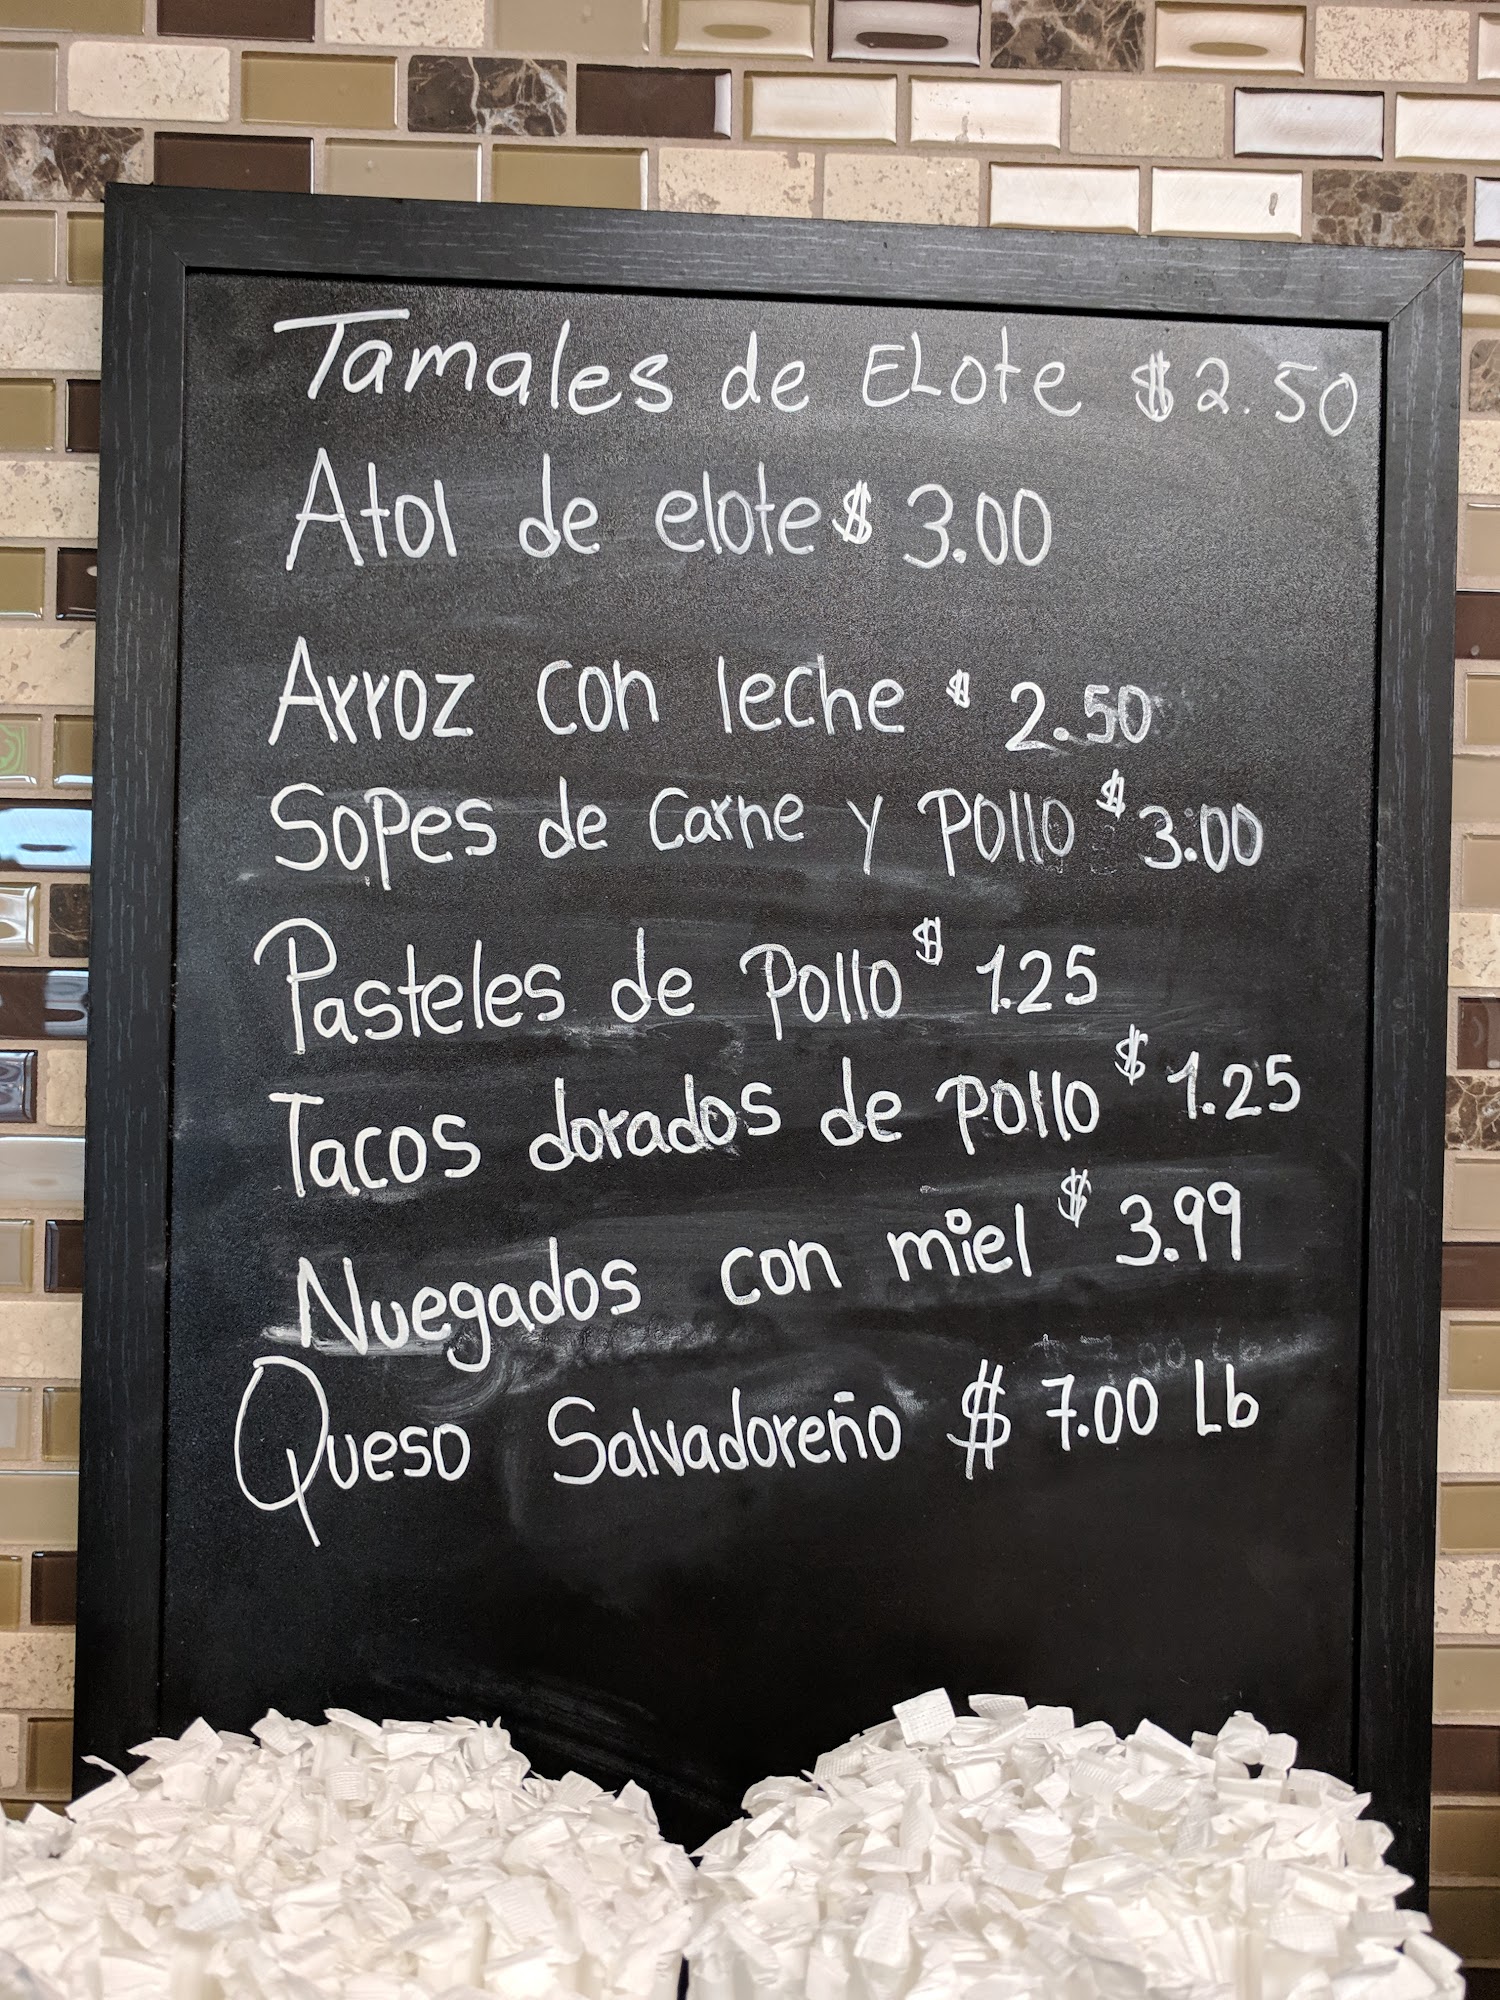 Tamales de ELote $2.50
Atol de elote $ 3.00
Arroz con leche $ 2.50
Sopes de Carne y Pollo $ 3.00
Pasteles de Pollo $ 1.25
Tacos dorados de pollo $ 1.25
Nuegados con miel $ 3.99
Queso Salvadoreño $ 7.00 Lb